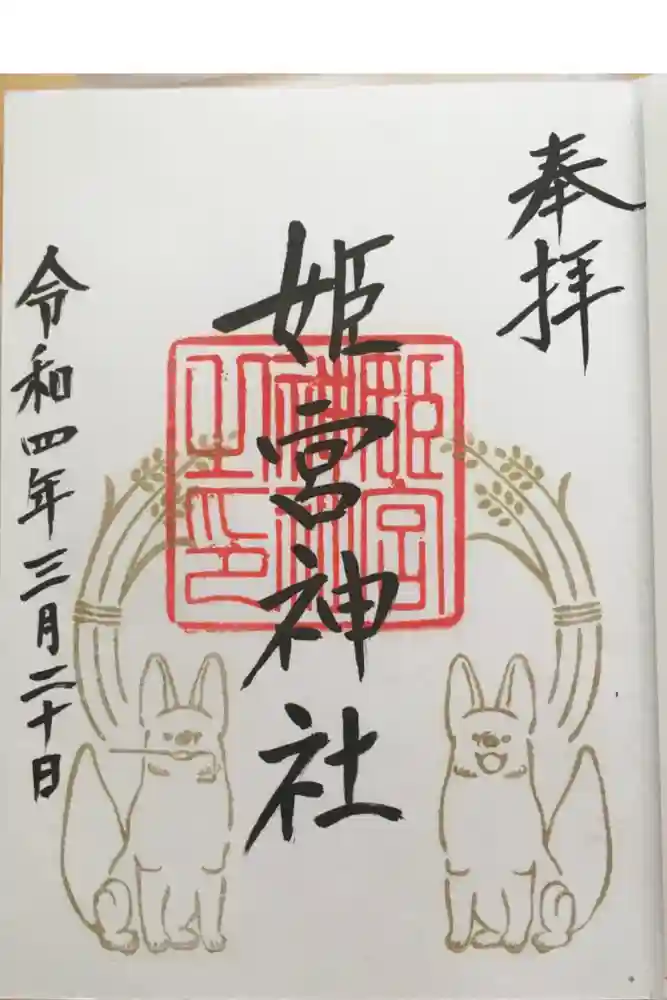 奉拝
姫宮神社
姫宮神社之印
令和四年三月二十日